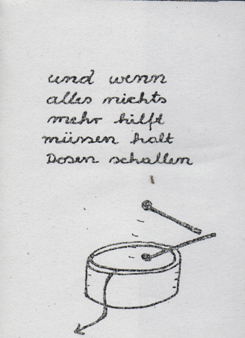 und wenn
alles nichts
mehr hilft
müssen halt
Dosen schallen